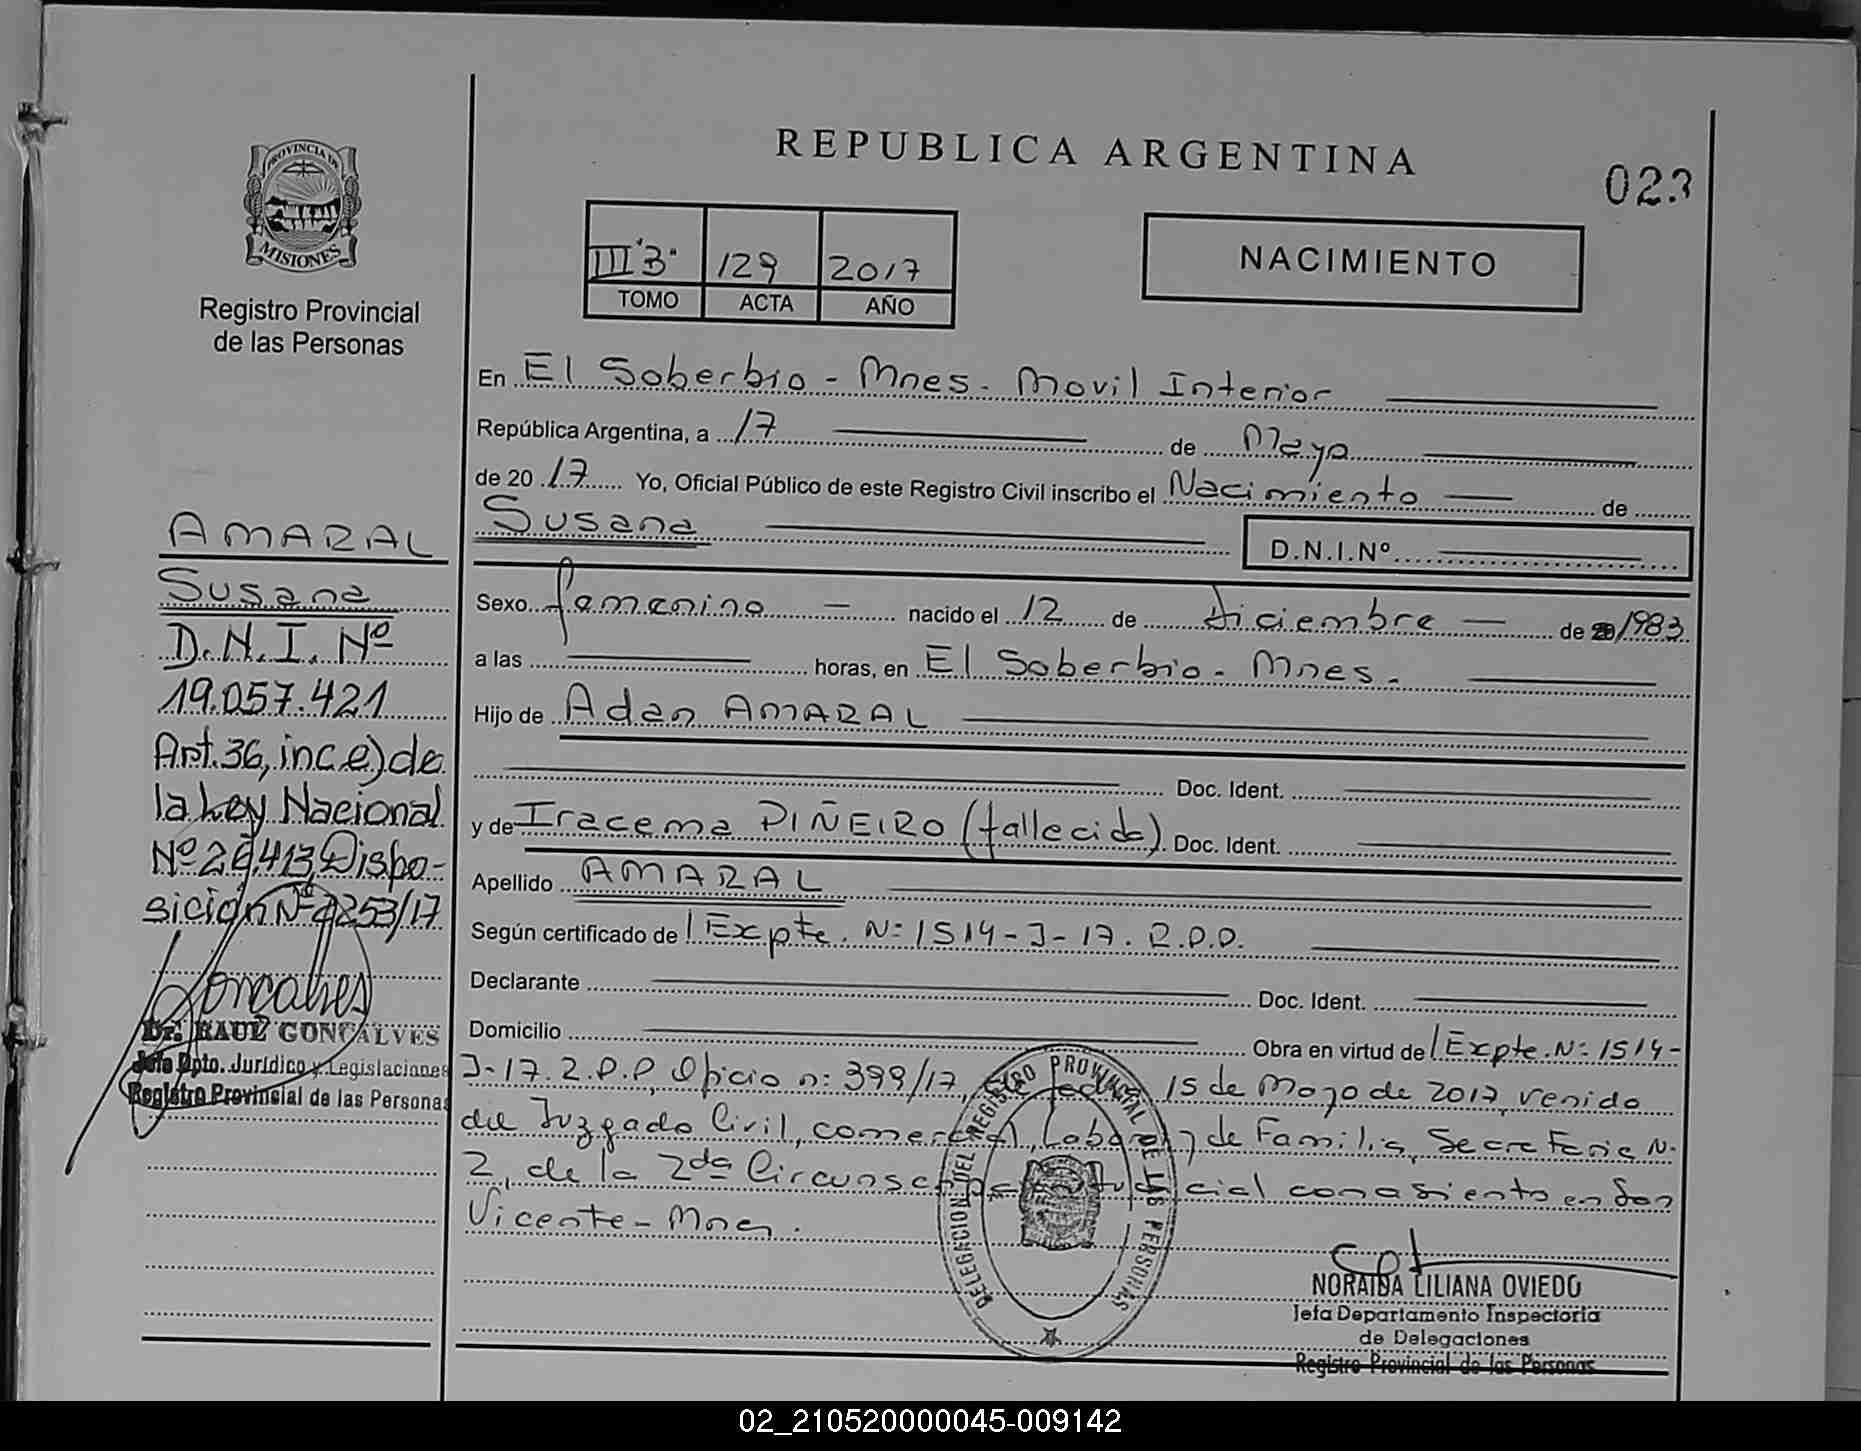 REPUBLICA ARGENTINA
023
PROVINCIA DE
MISIONES
Registro Provincial
de las Personas
III "B" 129 2017
TOMO ACTA AÑO
NACIMIENTO
En El Soberbio - Mnes - Movil Interior
República Argentina, a 17 de Mayo
de 20 17 Yo, Oficial Público de este Registro Civil inscribo el Nacimiento de
Susana D.N.I.Nº
Sexo femenino - nacido el 12 de diciembre - de 1983
a las horas, en El Soberbio - Mnes -
Hijo de Adan AMARAL
Doc. Ident.
y de Iracema PIÑEIRO (fallecida) Doc. Ident.
Apellido AMARAL
Según certificado de Expte. Nº 1514-J-17. R.P.P.
Declarante Doc. Ident.
Domicilio Obra en virtud de Expte. Nº 1514-
J-17. R.P.P, Oficio nº 399/17, 15 de Mayo de 2017, venido
del Juzgado Civil, comercial, Laboral y de Familia, Secretaria Nº
2, de la 2da Circunscripción Judicial con asiento en San
Vicente - Mnes.
AMARAL
Susana
D.N.I. Nº
19.057.421
Art. 36, inc. e) de
la Ley Nacional
Nº 26.413, Dispo-
sición Nº 253/17
Goncalves
Dr. RAUL GONCALVES
Jefe Dpto. Jurídico y Legislaciones
Registro Provincial de las Personas
DELEGACION DEL REGISTRO PROVINCIAL DE LAS PERSONAS
NORAIDA LILIANA OVIEDO
Jefa Departamento Inspectoria
de Delegaciones
Registro Provincial de las Personas
02_210520000045-009142